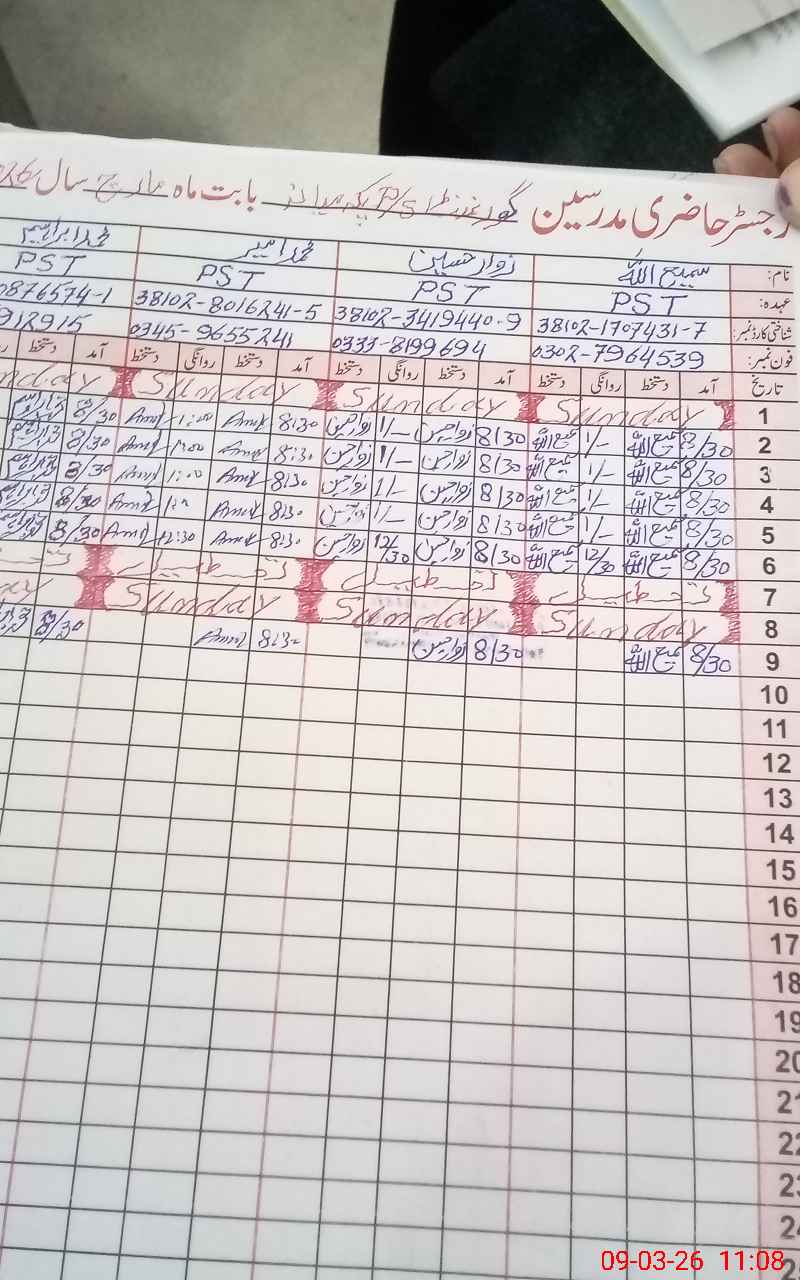 رجسٹر حاضری مدرسین گورنمنٹ P/S پکہ میانز بابت ماہ مارچ سال 026
نام: سمیع اللہ زوار حسین محمد امیر محمد ابراہیم
عہدہ: PST PST PST PST
شناختی کارڈ نمبر: 38102-1707431-7 38102-3419440-9 38102-8016241-5 0876574-1
فون نمبر: 0302-7964539 0333-8199694 0345-9655241 912915
تاریخ آمد دستخط روانگی دستخط آمد دستخط روانگی دستخط آمد دستخط روانگی دستخط آمد دستخط
1 Sunday Sunday Sunday nday
2 8/30 سمیع اللہ 1/- سمیع اللہ 8/30 زوار حسین 1/- زوار حسین 8:30 1:00 8/30
3 8/30 سمیع اللہ 1/- سمیع اللہ 8/30 زوار حسین 1/- زوار حسین 8:30 1:00 8/30
4 8/30 سمیع اللہ 1/- سمیع اللہ 8/30 زوار حسین 1/- زوار حسین 8:30 1:00 8/30
5 8/30 سمیع اللہ 1/- سمیع اللہ 8/30 زوار حسین 1/- زوار حسین 8:30 8/30
6 8/30 سمیع اللہ 12/30 سمیع اللہ 8/30 زوار حسین 12/30 زوار حسین 8:30 12:30 8/30
7 تعطیل تعطیل تعطیل
8 Sunday Sunday Sunday
9 8/30 سمیع اللہ 8/30 زوار حسین 8:30 8/30
10
11
12
13
14
15
16
17
18
19
20
21
22
23
24
09-03-26 11:08